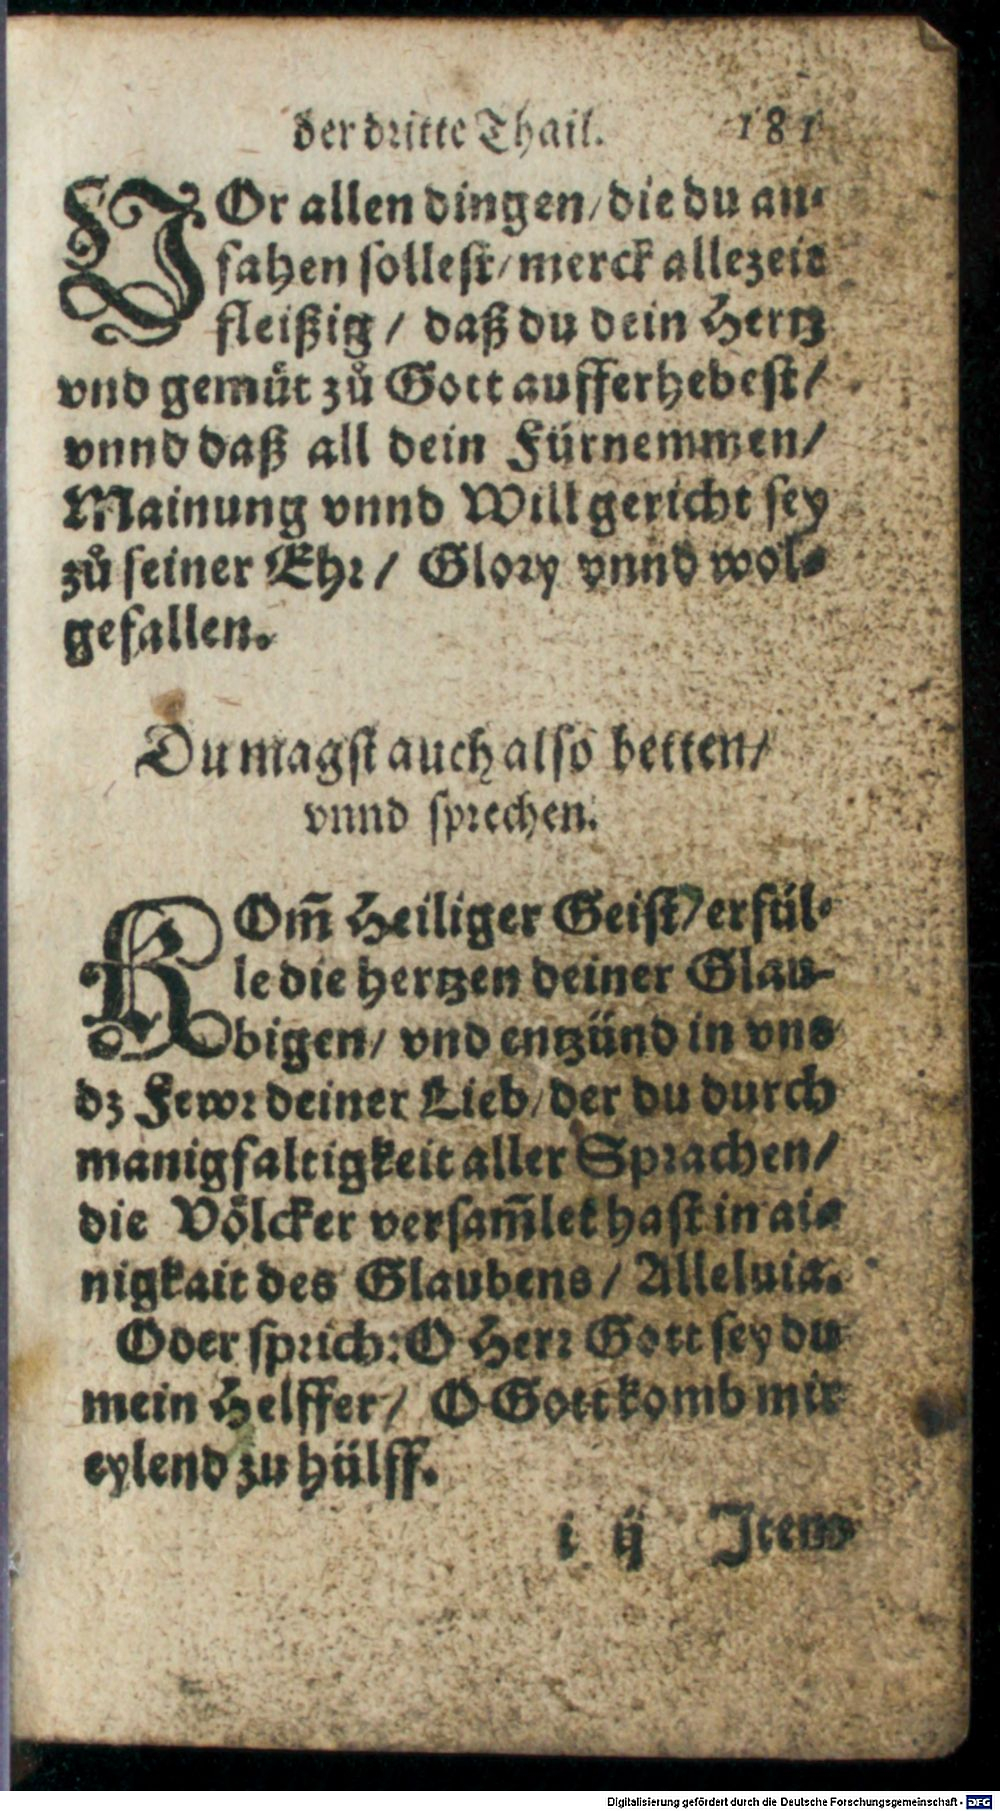 der dritte Thail. 181
VOr allen dingen/ die du an-
fahen sollest/ merck allezeit
fleißig/ daß du dein Hertz
vnd gemüt zů Gott aufferhebest/
vnnd daß all dein Fürnemmen/
Mainung vnnd Will gericht sey
zů seiner Ehr/ Glory vnnd wol-
gefallen.
Du magst auch also betten/
vnnd sprechen.
KOm̃ Heiliger Geist/ erfül-
le die hertzen deiner Glau-
bigen/ vnd entzünd in vns
dz Fewr deiner Lieb/ der du durch
manigfaltigkeit aller Sprachen/
die Völcker versam̃let hast in ai-
nigkait des Glaubens/ Alleluia.
Oder sprich: O Herr Gott sey du
mein Helffer/ O Gott komb mir
eylend zu hülff.
i ij Item
Digitalisierung gefördert durch die Deutsche Forschungsgemeinschaft - DFG